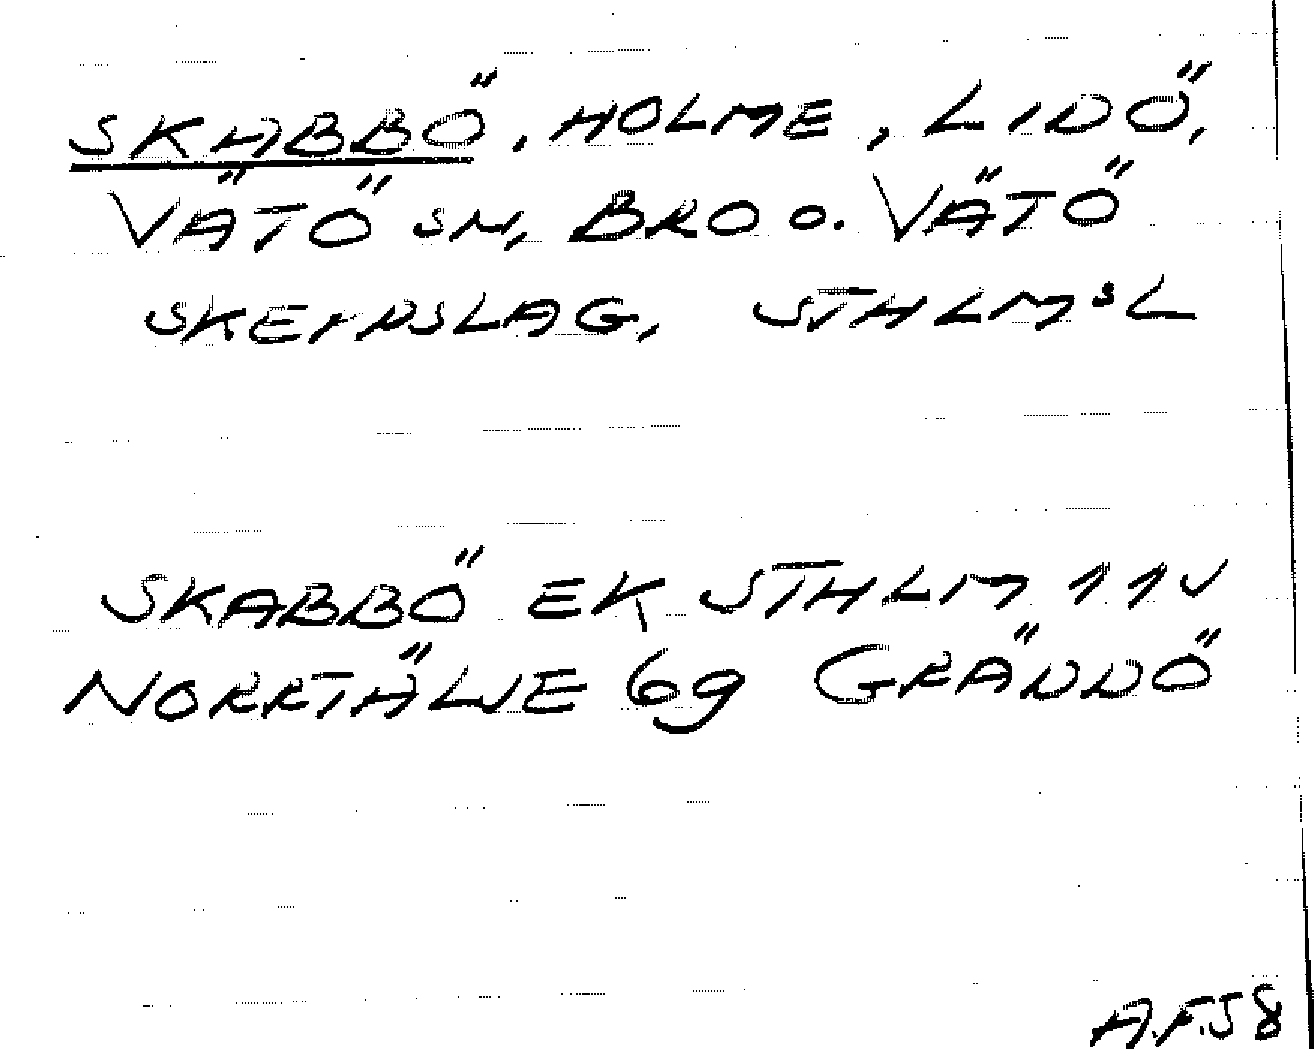 SKABBÖ, HOLME, LIDÖ,
VÄTÖ SN, BRO O. VÄTÖ
SKEPPSLAG, STHLMSL
SKABBÖ EK STHLM 11V
NORRTÄLJE 69 GRÄDDÖ
A.F.58